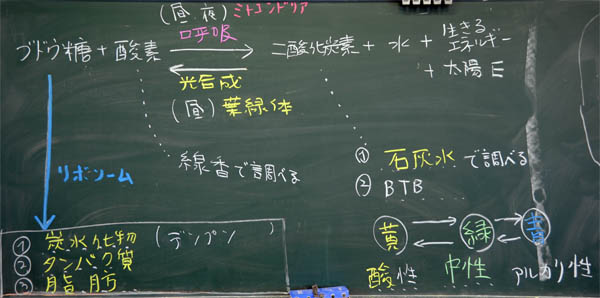 (昼.夜) ミトコンドリア
呼吸
ブドウ糖 + 酸素 二酸化炭素 + 水 + 生きるエネルギー
+ 太陽E
光合成
(昼) 葉緑体
リボソーム
線香で調べる
① 石灰水で調べる
② BTB
黄 緑 青
酸性 中性 アルカリ性
① 炭水化物 (デンプン )
② タンパク質
③ 脂肪